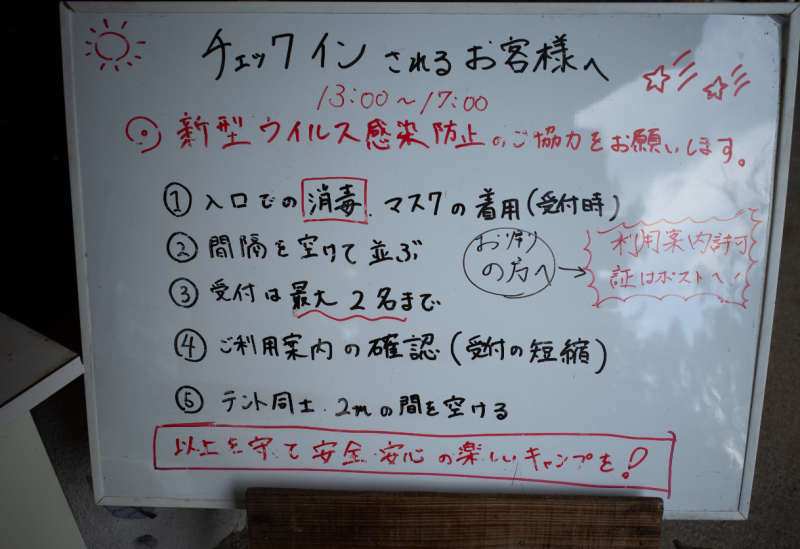 チェックインされるお客様へ
13:00〜17:00
新型ウイルス感染防止のご協力をお願いします。
① 入口での消毒.マスクの着用(受付時)
② 間隔を空けて並ぶ
お帰りの方へ→
利用案内許可証はポストへ!
③ 受付は最大2名まで
④ ご利用案内の確認(受付の短縮)
⑤ テント同士.2mの間を空ける
以上を守て安全.安心の楽しいキャンプを!